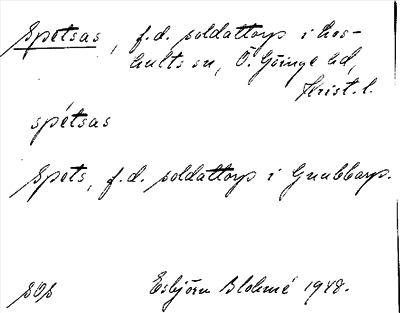 Spetsas, f.d. soldattorp i Los-
hults sn, Ö. Göinge hd,
Krist. l.
spétsas
Spets, f.d. soldattorp i Grubbarp.
SOS Esbjörn Blohmé 1948.